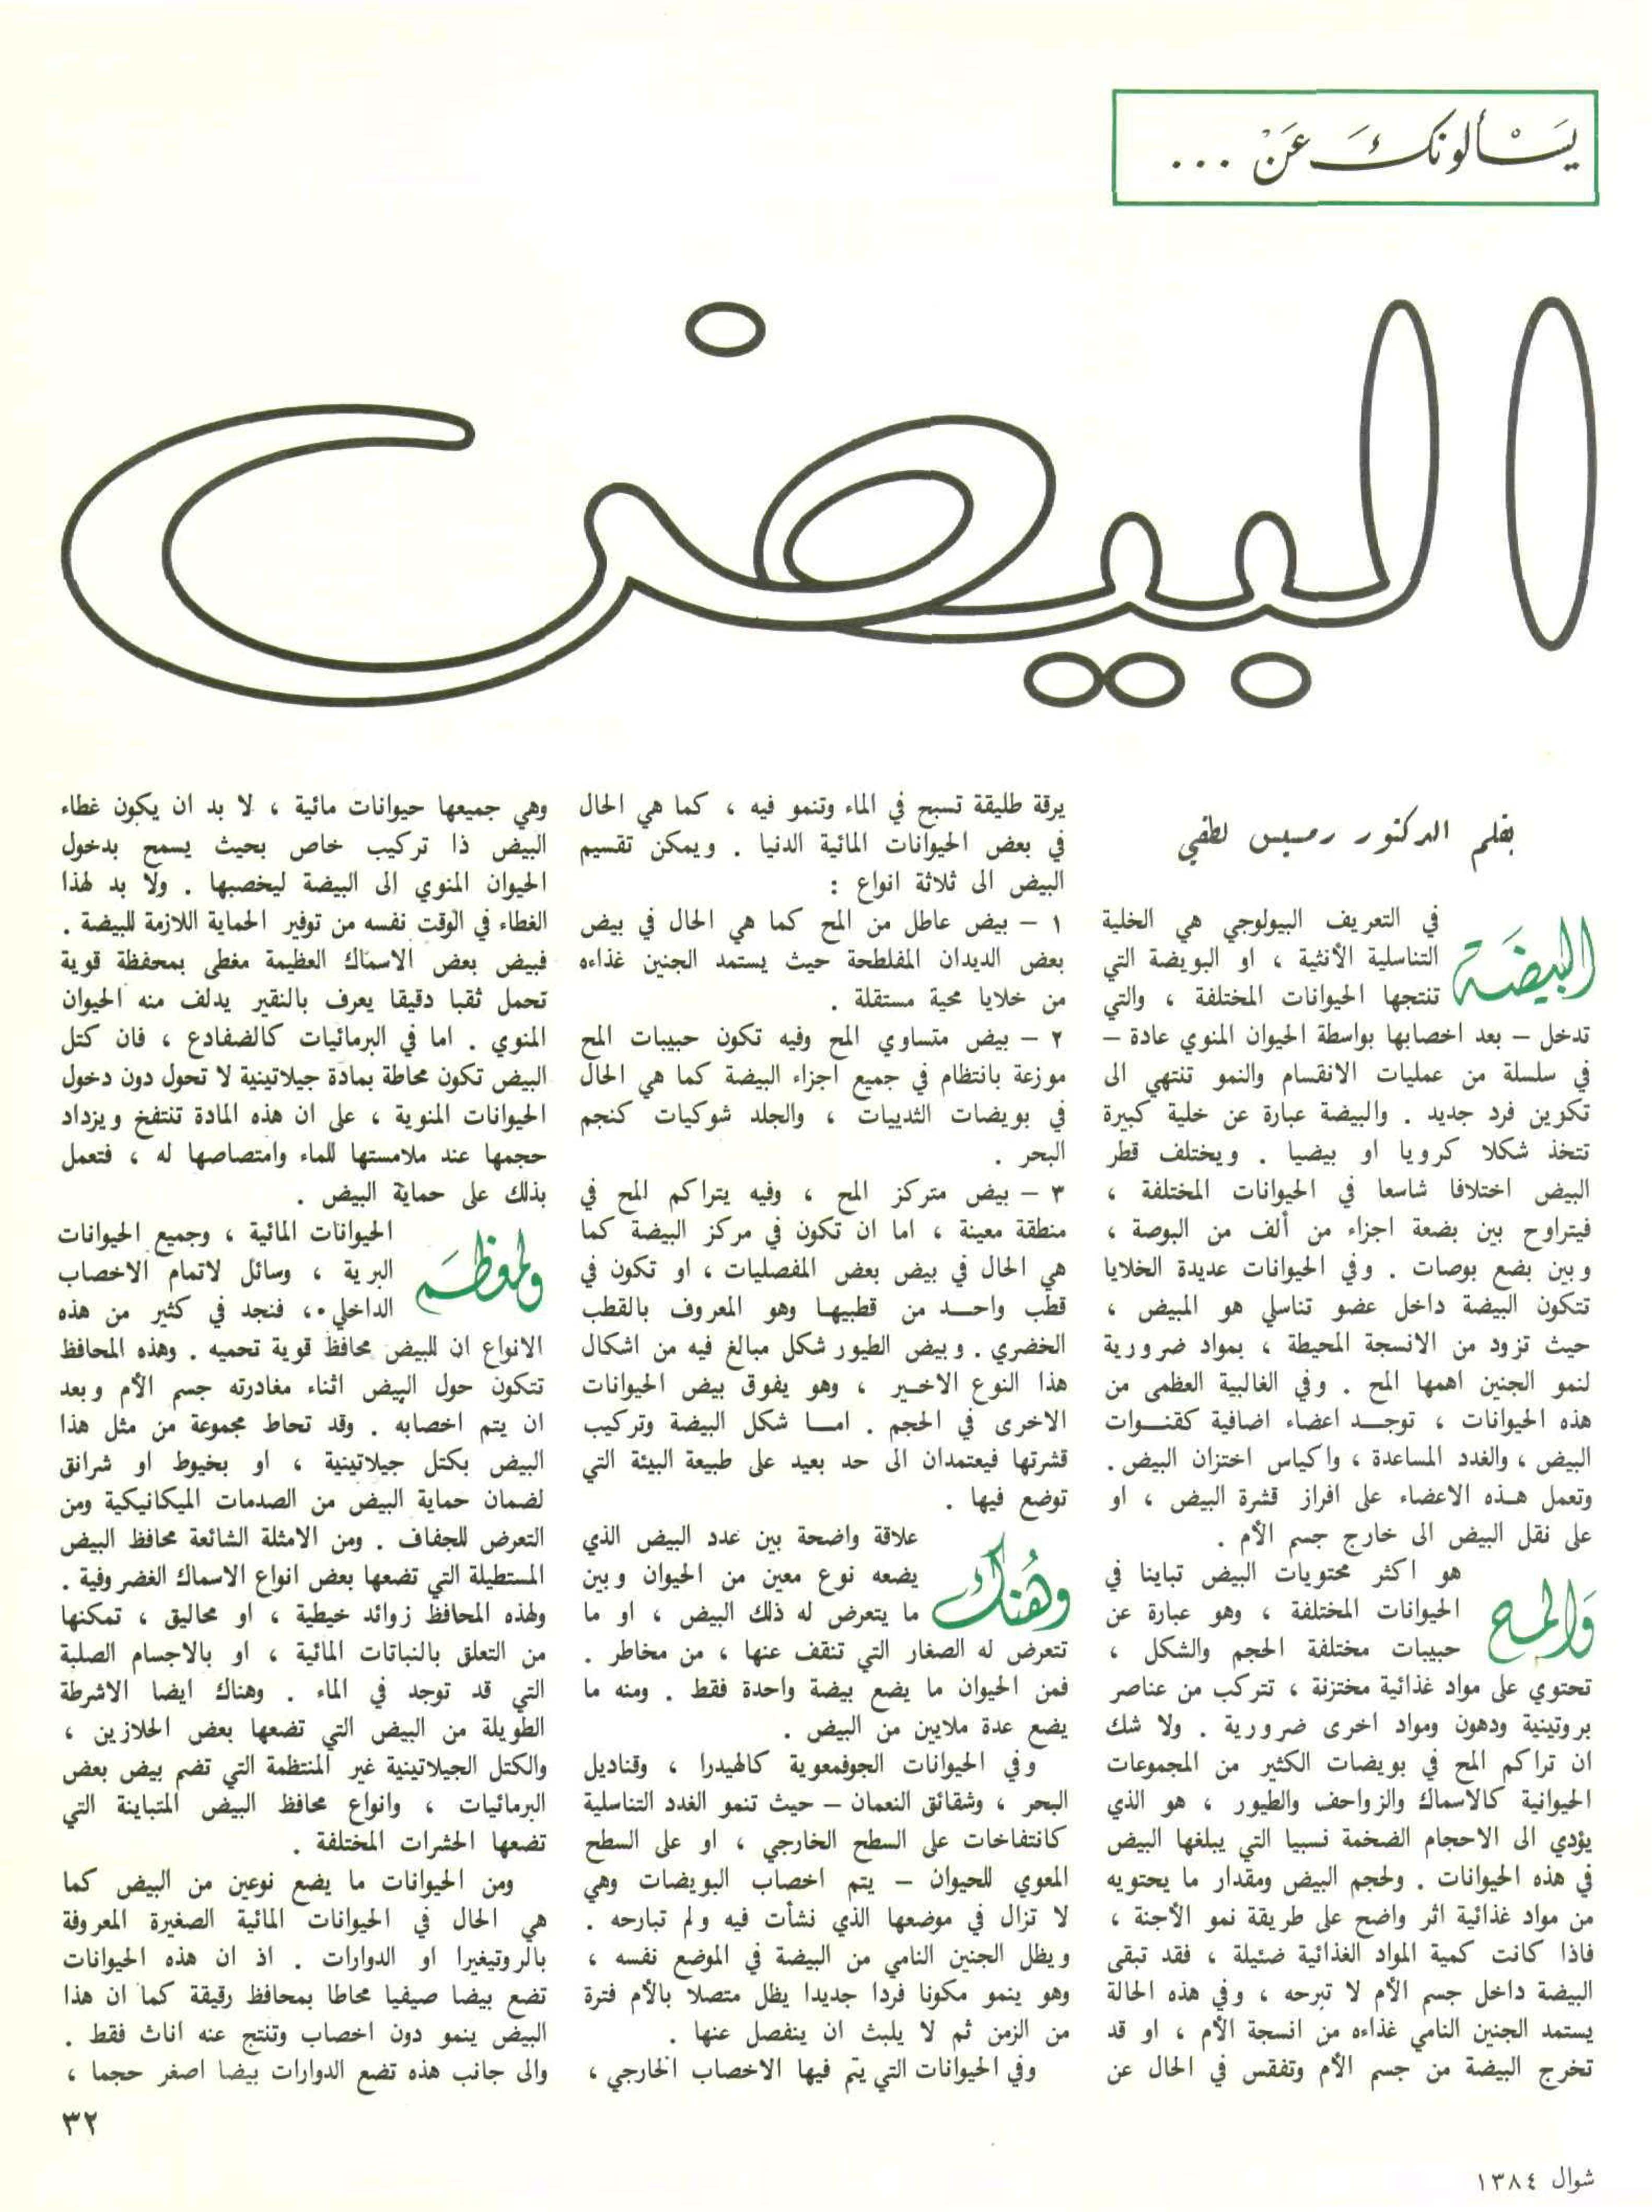 يَسْألونكَ عَنْ ...
البيض
بقلم الدكتور رمسيس لطفي
البيضَة في التعريف البيولوجي هي الخلية
التناسلية الأنثية ، او البويضة التي
تنتجها الحيوانات المختلفة ، والتي
تدخل – بعد اخصابها بواسطة الحيوان المنوي عادة –
في سلسلة من عمليات الانقسام والنمو تنتهي الى
تكوين فرد جديد . والبيضة عبارة عن خلية كبيرة
تتخذ شكلا كرويا او بيضيا . ويختلف قطر
البيض اختلافا شاسعا في الحيوانات المختلفة ،
فيتراوح بين بضعة اجزاء من ألف من البوصة ،
وبين بضع بوصات . وفي الحيوانات عديدة الخلايا
تتكون البيضة داخل عضو تناسلي هو المبيض ،
حيث تزود من الانسجة المحيطة ، بمواد ضرورية
لنمو الجنين اهمها المح . وفي الغالبية العظمى من
هذه الحيوانات ، توجـد اعضاء اضافية كقنـوات
البيض ، والغدد المساعدة ، واكياس اختزان البيض .
وتعمل هـذه الاعضاء على افراز قشرة البيض ، او
على نقل البيض الى خارج جسم الأم .
وَالمح هو اكثر محتويات البيض تباينا في
الحيوانات المختلفة ، وهو عبارة عن
حبيبات مختلفة الحجم والشكل ،
تحتوي على مواد غذائية مختزنة ، تتركب من عناصر
بروتينية ودهون ومواد اخرى ضرورية . ولا شك
ان تراكم المح في بويضات الكثير من المجموعات
الحيوانية كالاسماك والزواحف والطيور ، هو الذي
يؤدي الى الاحجام الضخمة نسبيا التي يبلغها البيض
في هذه الحيوانات . ولحجم البيض ومقدار ما يحتويه
من مواد غذائية اثر واضح على طريقة نمو الأجنة ،
فاذا كانت كمية المواد الغذائية ضئيلة ، فقد تبقى
البيضة داخل جسم الأم لا تبرحه ، وفي هذه الحالة
يستمد الجنين النامي غذاءه من انسجة الأم ، او قد
تخرج البيضة من جسم الأم وتفقس في الحال عن
يرقة طليقة تسبح في الماء وتنمو فيه ، كما هي الحال
في بعض الحيوانات المائية الدنيا . ويمكن تقسيم
البيض الى ثلاثة انواع :
١ – بيض عاطل من المح كما هي الحال في بيض
بعض الديدان المفلطحة حيث يستمد الجنين غذاءه
من خلايا محية مستقلة .
٢ – بيض متساوي المح وفيه تكون حبيبات المح
موزعة بانتظام في جميع اجزاء البيضة كما هي الحال
في بويضات الثدييات ، والجلد شوكيات كنجم
البحر .
٣ – بيض متركز المح ، وفيه يتراكم المح في
منطقة معينة ، اما ان تكون في مركز البيضة كما
هي الحال في بيض بعض المفصليات ، او تكون في
قطب واحـد من قطبيهـا وهو المعروف بالقطب
الخضري . وبيض الطيور شكل مبالغ فيه من اشكال
هذا النوع الاخـير ، وهو يفوق بيض الحيوانات
الاخرى في الحجم . امـا شكل البيضة وتركيب
قشرتها فيعتمدان الى حد بعيد على طبيعة البيئة التي
توضع فيها .
وهُناك علاقة واضحة بين عدد البيض الذي
يضعه نوع معين من الحيوان وبين
ما يتعرض له ذلك البيض ، او ما
تتعرض له الصغار التي تنقف عنها ، من مخاطر .
فمن الحيوان ما يضع بيضة واحدة فقط . ومنه ما
يضع عدة ملايين من البيض .
وفي الحيوانات الجوفمعوية كالهيدرا ، وقناديل
البحر ، وشقائق النعمان – حيث تنمو الغدد التناسلية
كانتفاخات على السطح الخارجي ، او على السطح
المعوي للحيوان – يتم اخصاب البويضات وهي
لا تزال في موضعها الذي نشأت فيه ولم تبارحه .
ويظل الجنين النامي من البيضة في الموضع نفسه ،
وهو ينمو مكونا فردا جديدا يظل متصلا بالأم فترة
من الزمن ثم لا يلبث ان ينفصل عنها .
وفي الحيوانات التي يتم فيها الاخصاب الخارجي ،
وهي جميعها حيوانات مائية ، لا بد ان يكون غطاء
البيض ذا تركيب خاص بحيث يسمح بدخول
الحيوان المنوي الى البيضة ليخصبها . ولا بد لهذا
الغطاء في الوقت نفسه من توفير الحماية اللازمة للبيضة .
فبيض بعض الاسماك العظيمة مغطى بمحفظة قوية
تحمل ثقبا دقيقا يعرف بالنقير يدلف منه الحيوان
المنوي . اما في البرمائيات كالضفادع ، فان كتل
البيض تكون محاطة بمادة جيلاتينية لا تحول دون دخول
الحيوانات المنوية ، على ان هذه المادة تنتفخ ويزداد
حجمها عند ملامستها للماء وامتصاصها له ، فتعمل
بذلك على حماية البيض .
ولمعظَم الحيوانات المائية ، وجميع الحيوانات
البرية ، وسائل لاتمام الاخصاب
الداخلي ، فنجد في كثير من هذه
الانواع ان للبيض محافظ قوية تحميه . وهذه المحافظ
تتكون حول البيض اثناء مغادرته جسم الأم وبعد
ان يتم اخصابه . وقد تحاط مجموعة من مثل هذا
البيض بكتل جيلاتينية ، او بخيوط او شرانق
لضمان حماية البيض من الصدمات الميكانيكية ومن
التعرض للجفاف . ومن الامثلة الشائعة محافظ البيض
المستطيلة التي تضعها بعض انواع الاسماك الغضروفية .
ولهذه المحافظ زوائد خيطية ، او محاليق ، تمكنها
من التعلق بالنباتات المائية ، او بالاجسام الصلبة
التي قد توجد في الماء . وهناك ايضا الاشرطة
الطويلة من البيض التي تضعها بعض الحلازين ،
والكتل الجيلاتينية غير المنتظمة التي تضم بيض بعض
البرمائيات ، وانواع محافظ البيض المتباينة التي
تضعها الحشرات المختلفة .
ومن الحيوانات ما يضع نوعين من البيض كما
هي الحال في الحيوانات المائية الصغيرة المعروفة
بالروتيغيرا او الدوارات . اذ ان هذه الحيوانات
تضع بيضا صيفيا محاطا بمحافظ رقيقة كما ان هذا
البيض ينمو دون اخصاب وتنتج عنه اناث فقط .
والى جانب هذه تضع الدوارات بيضا اصغر حجما ،
٣٢
شوال ١٣٨٤